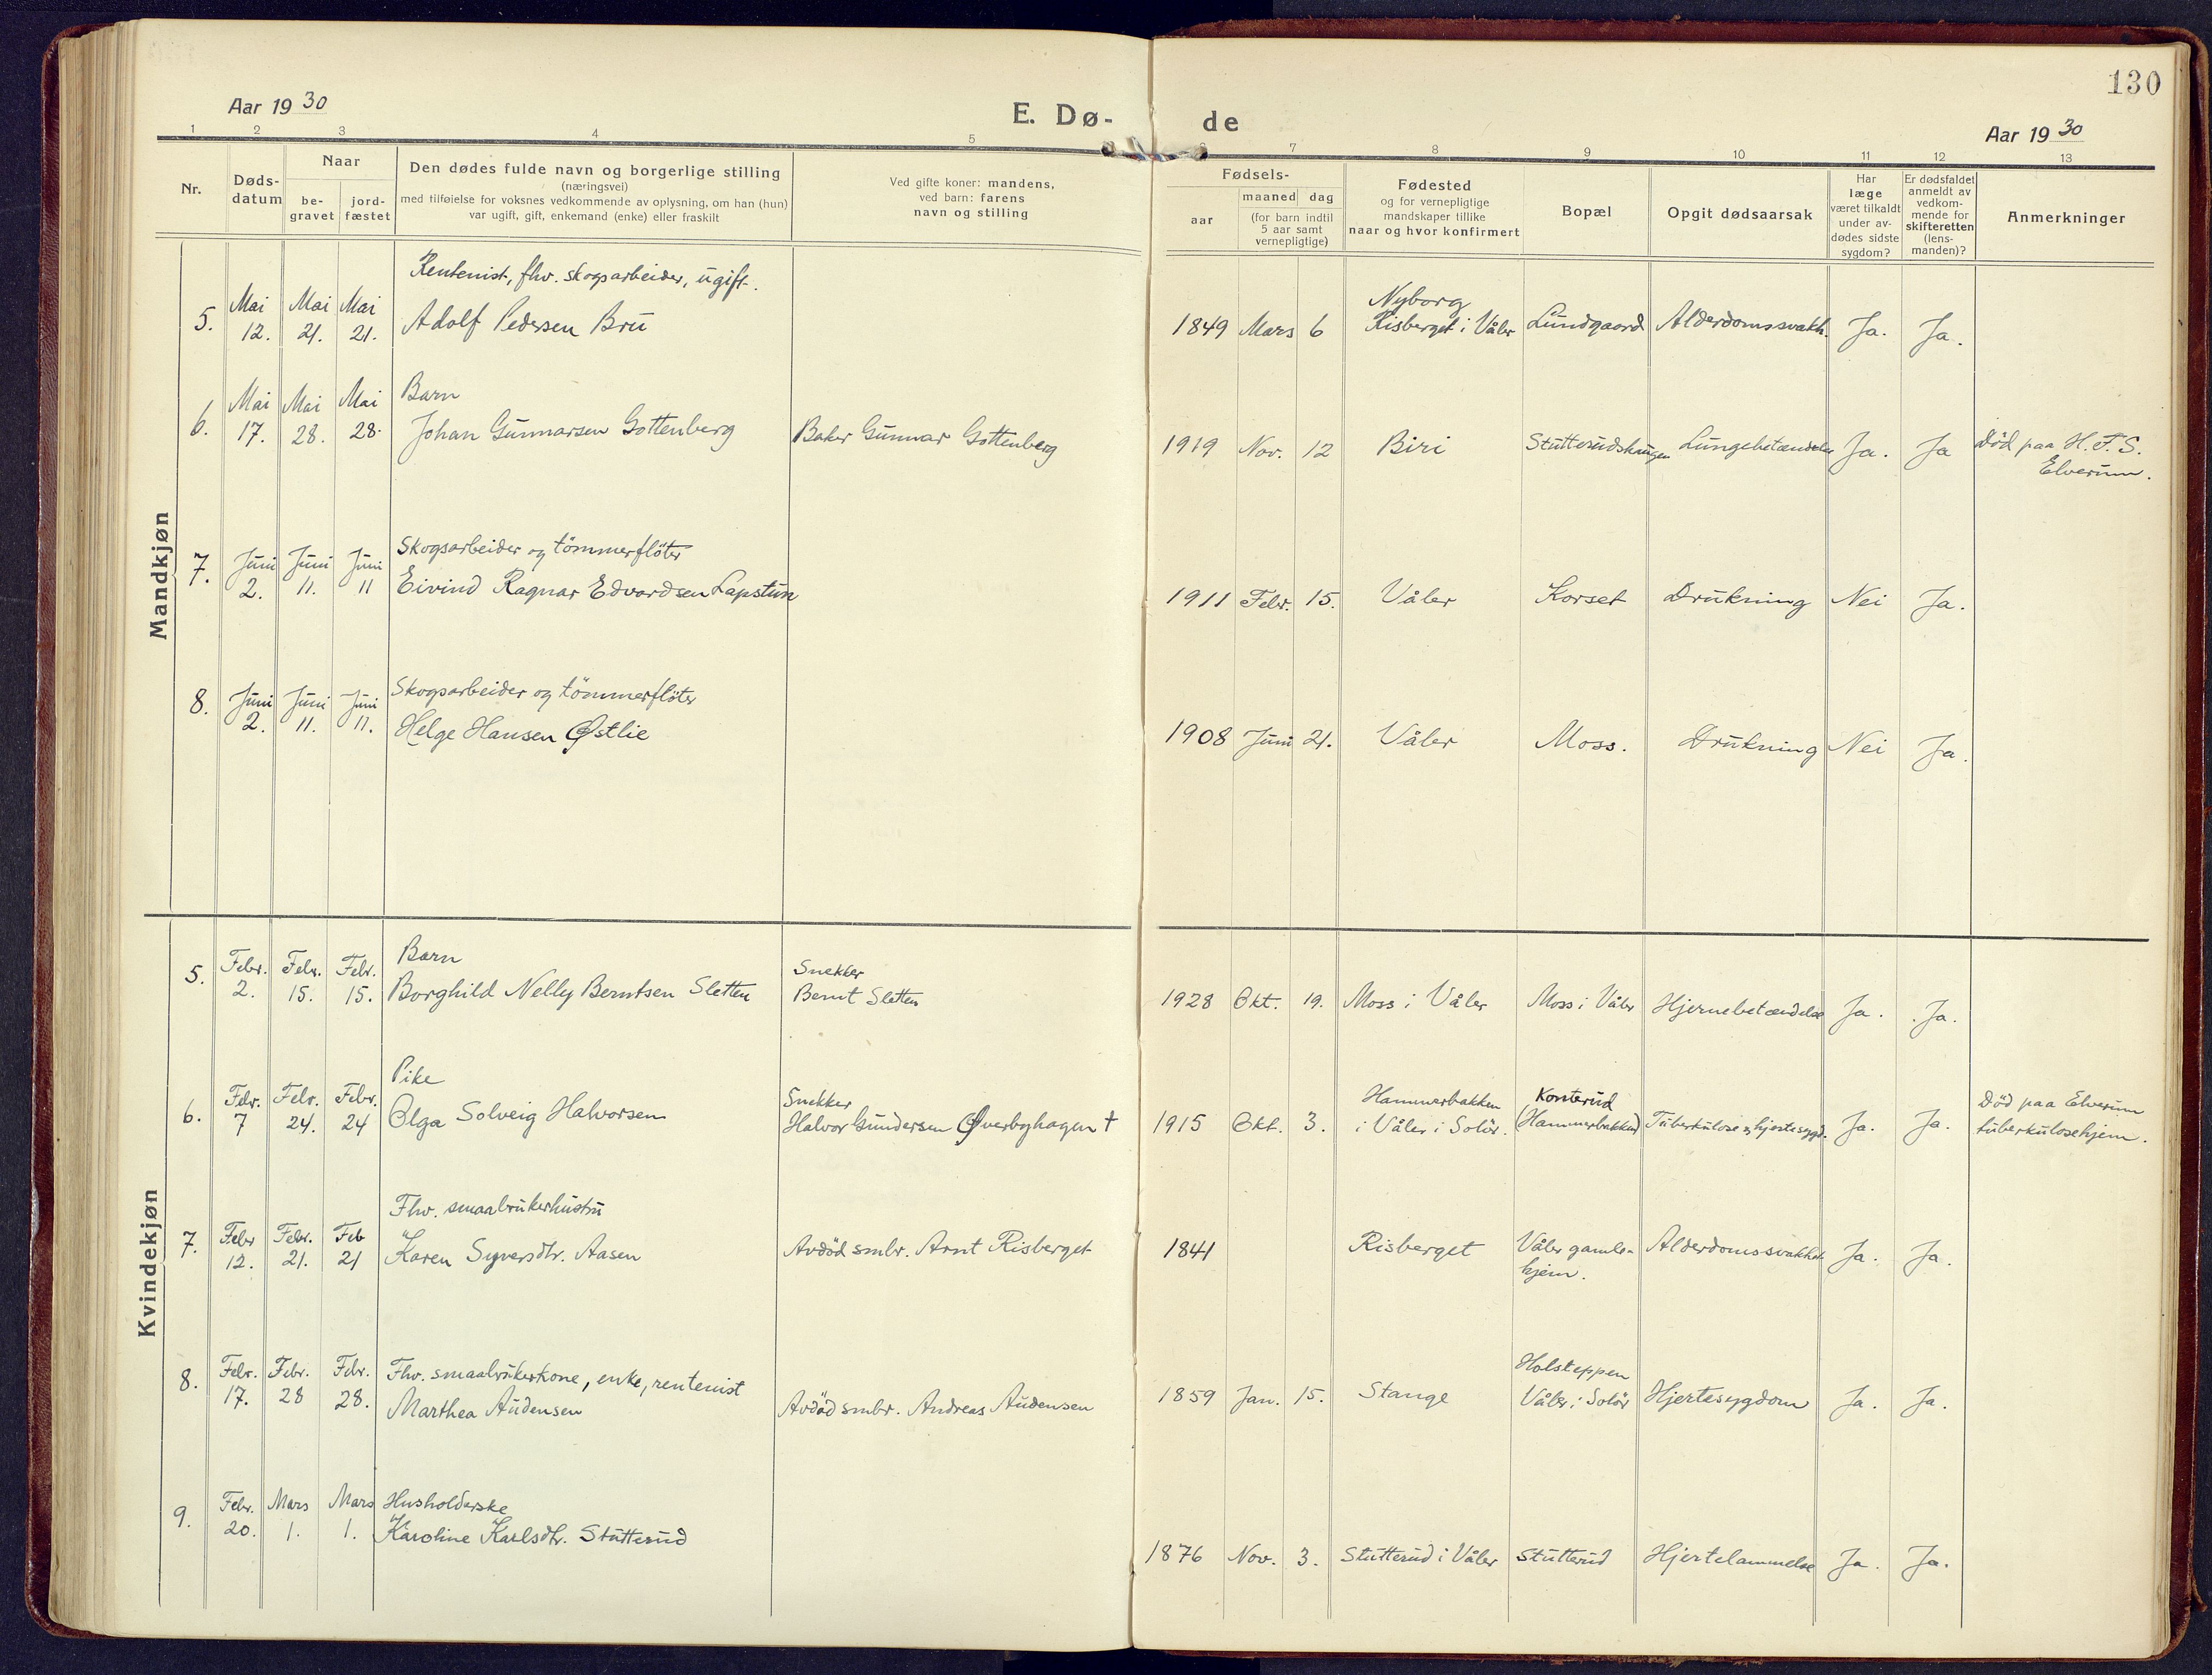 130
Aar 1930
E. Dø-
de
Aar 1930
1
2
3
4
5
7
8
9
10
11
12
13
Nr.
Døds-
datum
Naar
be-
gravet
jord-
fæstet
Den dødes fulde navn og borgerlige stilling
(næringsvei)
med tilføielse for voksnes vedkommende av oplysning, om han (hun)
var ugift, gift, enkemand (enke) eller fraskilt
Ved gifte koner: mandens,
ved barn: farens
navn og stilling
Fødsels-
aar
maaned
dag
(for barn indtil
5 aar samt
vernepligtige)
Fødested
og for vernepligtige
mandskaper tillike
naar og hvor konfirmert
Bopæl
Opgit dødsaarsak
Har
læge
været tilkaldt
under av-
dødes sidste
sygdom?
Er dødsfaldet
anmeldt av
vedkom-
mende for
skifteretten
(lens-
manden)?
Anmerkninger
Mandkjøn
Rentenist, fhv. skogsarbeider, ugift.
5.
Mai
12.
Mai
21.
Mai
21.
Adolf Pedersen Bru
1849 Mars 6
Nyborg
Risberget i Våler
Lundgaard
Alderdomssvakh.
Ja.
Ja.
6.
Mai
17.
Mai
28.
Mai
28.
Barn
Johan Gunnarsen Gottenberg
Baker Gunnar Gottenberg
1919 Nov. 12
Biri
Stutterudshaugen
Lungebetændelse
Ja.
Ja
Død paa H. F. S.
Elverum.
7.
Juni
2.
Juni
11.
Juni
11
Skogsarbeider og tömmerflöter
Eivind Ragnar Edvardsen Lapstun
1911 Febr. 15.
Våler
Korset
Drukning
Nei
Ja.
8.
Juni
2.
Juni
11.
Juni
11.
Skogsarbeider og tömmerflöter
Helge Hansen Østlie
1908 Juni 21.
Våler
Moss.
Drukning
Nei
Ja.
Kvindekjøn
5.
Febr.
2.
Febr.
15.
Febr.
15.
Barn
Borghild Nelly Berntsen Sletten
Snekker
Bernt Sletten
1928 Okt. 19.
Moss i Våler
Moss i Våler
Hjernebetændelse
Ja.
Ja.
6.
Febr.
7
Febr.
24.
Febr.
24
Pike
Olga Solveig Halvorsen
Snekker
Halvor Gundersen Øverbyhagen †
1915 Okt. 3.
Hammerbakken
i Våler i Solör.
Konterud
(Hammerbakken)
Tuberkulose & hjertesygd.
Ja.
Ja.
Död paa Elverum
tuberkulosehjem.
7.
Febr
12.
Febr.
21.
Feb
21
Fhv. smaabrukerhustru
Karen Syversdtr. Aasen
Avdöd smbr. Arnt Risberget
1841
Risberget
Våler gamle-
hjem.
Alderdomssvakhet
Ja.
Ja.
8.
Febr.
17.
Febr.
28
Febr.
28.
Fhv. smaabrukerkone, enke, rentenist
Marthea Audensen
Avdöd smbr. Andreas Audensen
1859 Jan. 15.
Stange
Holsteppen
Våler i Solör
Hjertesygdom
Ja.
Ja.
9.
Febr.
20.
Mars
1.
Mars
1.
Husholderske
Karoline Karlsdtr. Stutterud
1876 Nov. 3.
Stutterud i Våler
Stutterud
Hjertelammelse
Ja.
Ja.